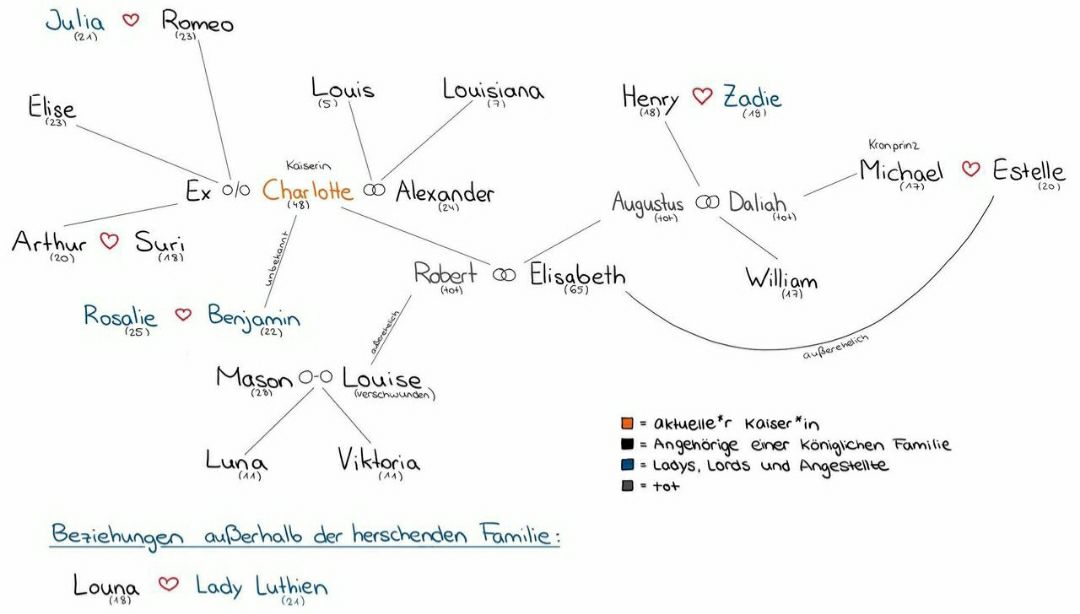 Julia ♡ Romeo
(21) (23)
Louis Louisiana
(5) (7)
Henry ♡ Zadie
(18) (19)
Elise
(23)
Kronprinz
Michael ♡ Estelle
(17) (20)
Kaiserin
Ex o/o Charlotte Alexander
(48) (24)
Augustus Daliah
(tot) (tot)
Arthur ♡ Suri
(20) (18)
unbekannt
Robert Elisabeth
(tot) (65)
William
(17)
Rosalie ♡ Benjamin
(25) (22)
außerehelich
außerehelich
Mason o-o Louise
(28) (verschwunden)
Luna Viktoria
(11) (11)
= aktuelle*r Kaiser*in
= Angehörige einer königlichen Familie
= Ladys, Lords und Angestellte
= tot
Beziehungen außerhalb der herschenden Familie:
Louna ♡ Lady Luthien
(18) (21)